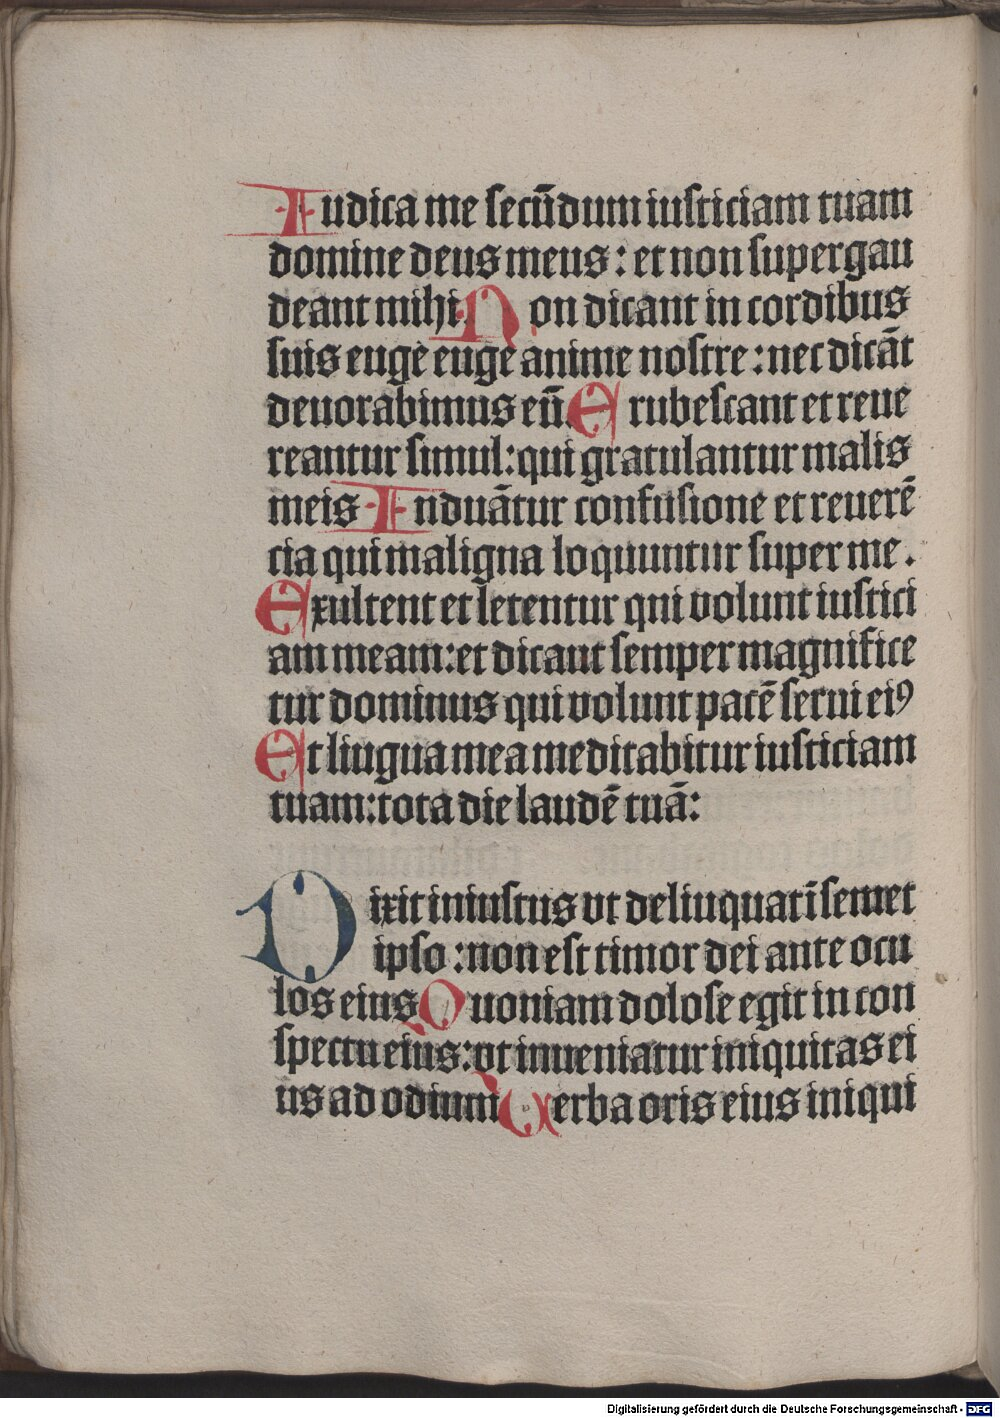 Iudica me secūdum iusticiam tuam
domine deus meus : et non supergau
deant mihi. Non dicant in cordibus
suis euge euge anime nostre : nec dicāt
deuorabimus eū. Erubescant et reue
reantur simul: qui gratulantur malis
meis Induātur confusione et reuerē
cia qui maligna loquuntur super me .
Exultent et letentur qni volunt iustici
am meam: et dicant semper magnifice
tur dominus qui volunt pacē serui eiꝰ
Et lingua mea meditabitur iusticiam
tuam: tota die laudē tuā:
Dixit iniustus vt delinquat ī semet
ipso : non est timor dei ante ocu
los eius Quoniam dolose egit in con
spectu eius: vt inueniatur iniquitas ei
us ad odium Uerba oris eius iniqui
Digitalisierung gefördert durch die Deutsche Forschungsgemeinschaft - DFG